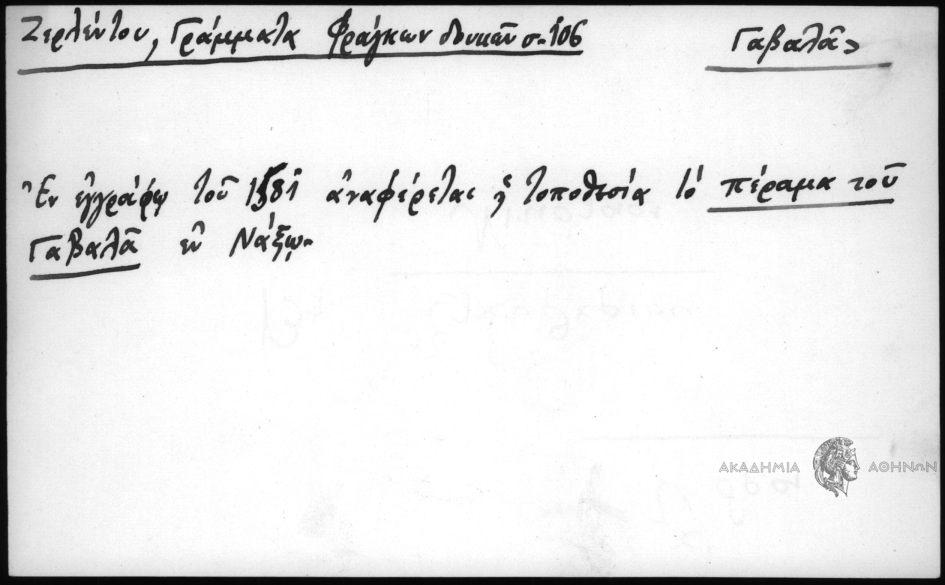 Ζερλέντου, Γράμματα Φράγκων δουκῶν σ. 106
Γαβαλᾶς
Ἐν ἐγγράφῳ τοῦ 1581 ἀναφέρεται ἡ τοποθεσία τὸ πέραμα τοῦ
Γαβαλᾶ ἐν Νάξῳ.
ΑΚΑΔΗΜΙΑ ΑΘΗΝΩΝ